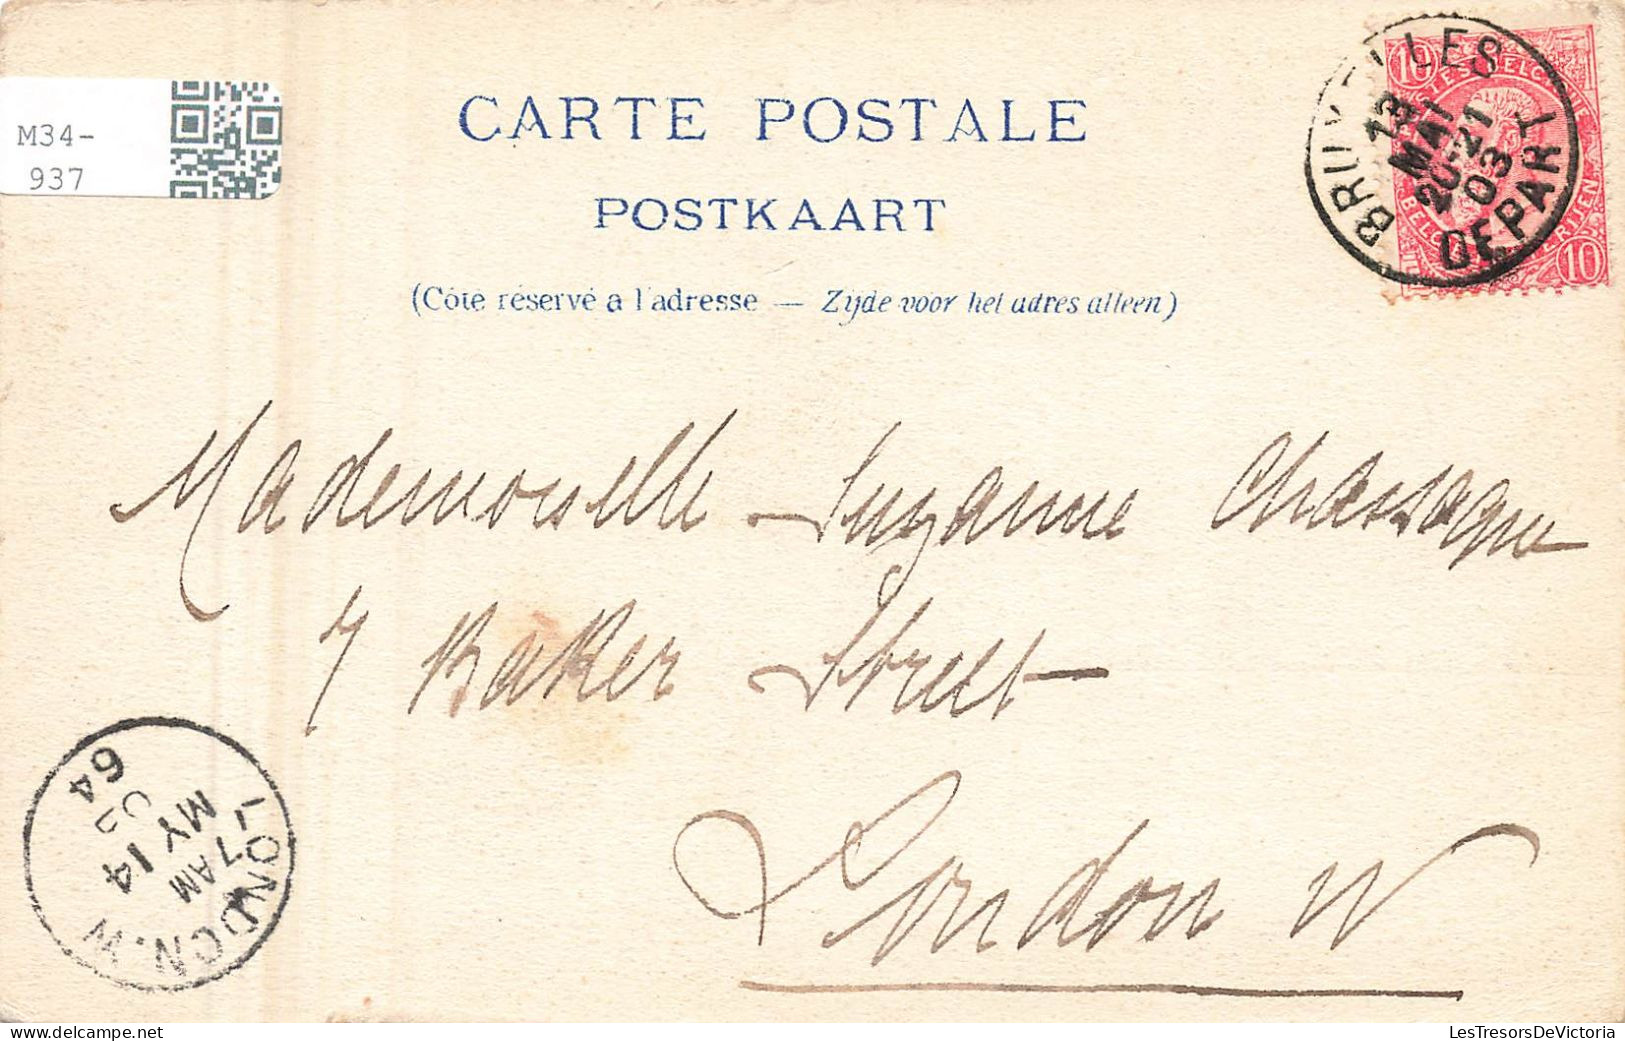 M34-
937
CARTE POSTALE
POSTKAART
(Côté réservé a l'adresse — Zijde voor het adres alleen)
BRUXELLES
13
MAI
20-21
03
DEPART
10
10
Mademoiselle Suzanne Chassagne
7 Baker Street
London W
LONDON.W
7 AM
MY 14
03
64
LesTresorsDeVictoria